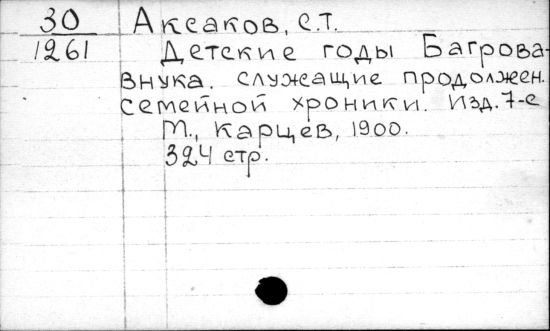 30 Аксаков, С.Т.
1261 Детские годы Багрова-
внука. служащие продолжен.
семейной хроники. Изд. 7-е
М., Карцев, 1900.
324 стр.